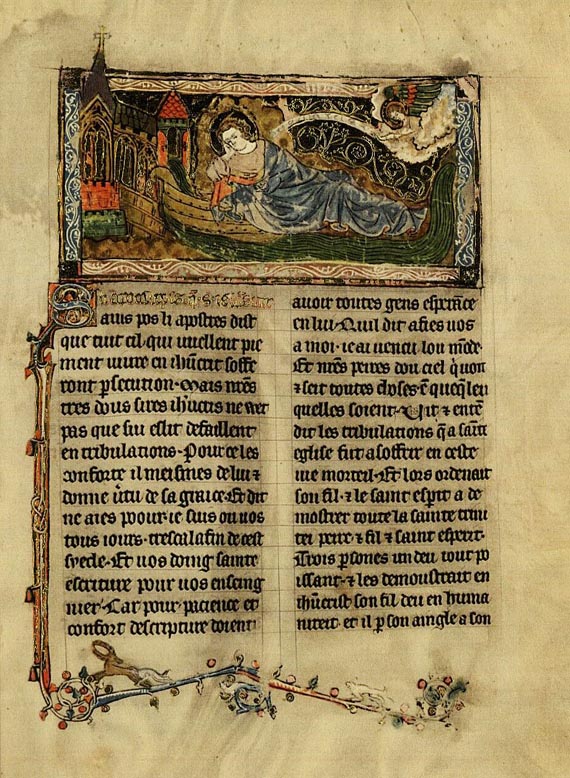 Sains pos li apostres dist
que tuit cil qui vuellent pie
ment viure en ihucrit soffe
ront psecution· Mais nres
tres dous sires ihucris ne vet
pas que sui eslit defaillent
en tribulations· Pour ce les
conforte il meismes de lui ⁊
donne utu de sa grace· Et dit
ne aies poour ie suis ou vos
tous iours· tresca la fin de cest
syecle· Et vos doing sainte
escriture pour vos enseing
nier· Car pour pacience et
confort descripture doient
avoir toutes gens espence
en lui· Quil dit afies vos
a moi· ie ai vencu lou mōde·
Et nres peires dou ciel qͥ voit
⁊ seit toutes choses ē queqͣ leu
quelles soient· Vit ⁊ entē
dit les tribulations qͣ a sainte
eglise fut a soffrir en ceste
vie morteil· Et lors ordenait
son fil· ⁊ le saint esperit a de
mostrer toute la sainte trini
tei peire ⁊ fil ⁊ saint esperit·
Trois psones un deu tout po
issant· ⁊ les demoustrait en
ihucrist son fil deu en huma
niteit· et il p son aingle a son